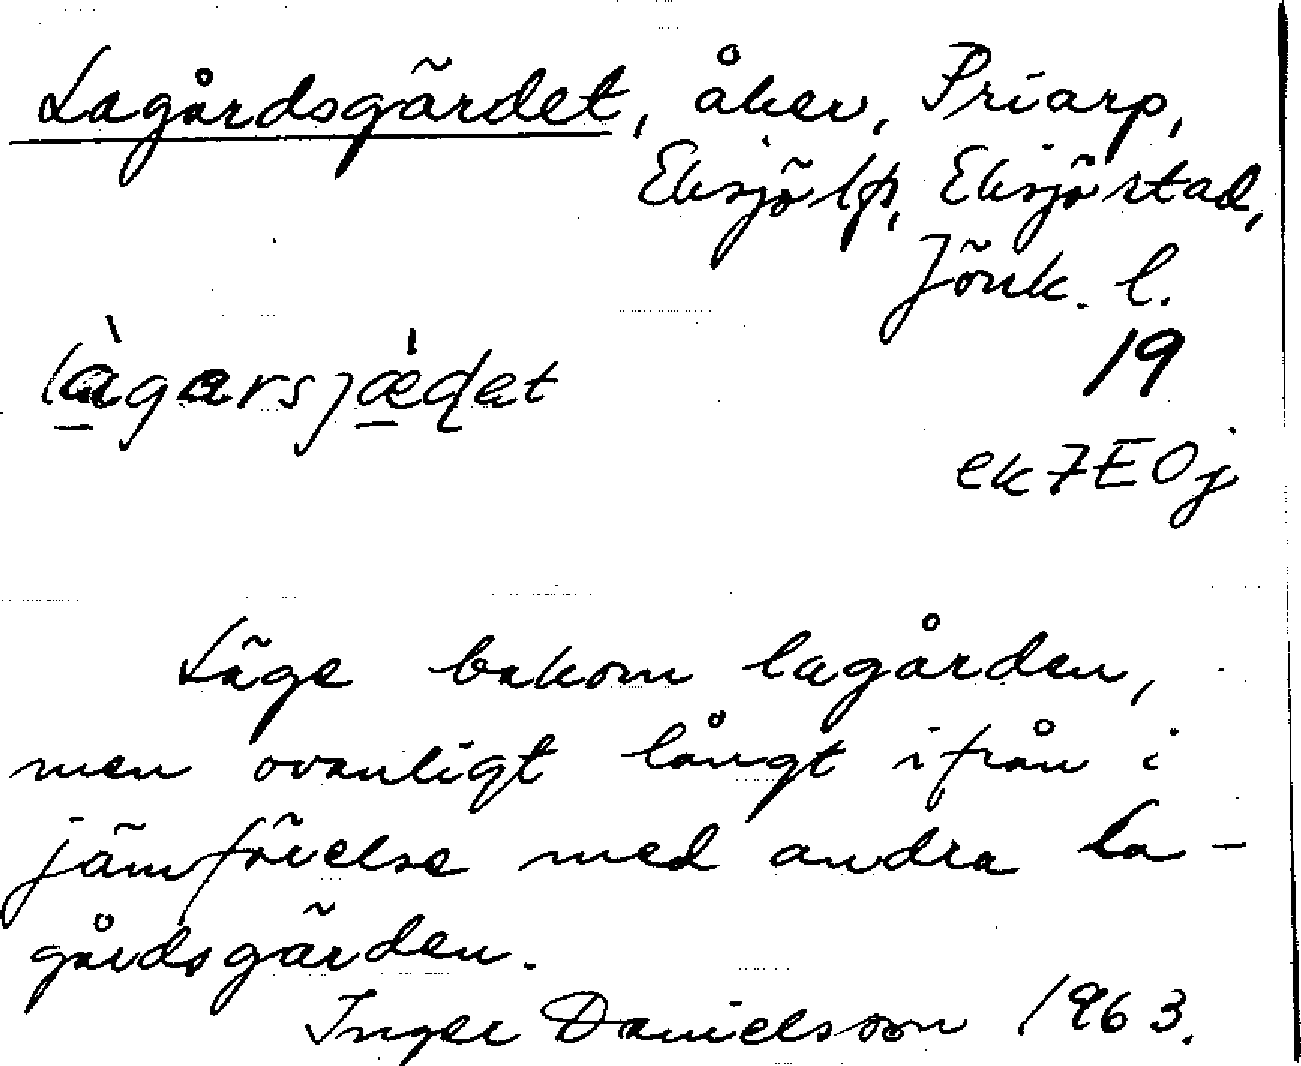 Lagårdsgärdet, åker, Priarp,
Eksjö lfs, Eksjö stad,
Jönk. l.
19
làgarsjæ̀ɖet
ek7E0j
Läge bakom lagården,
men ovanligt långt ifrån i
jämförelse med andra la-
gårdsgärden.
Inger Danielsson 1963.